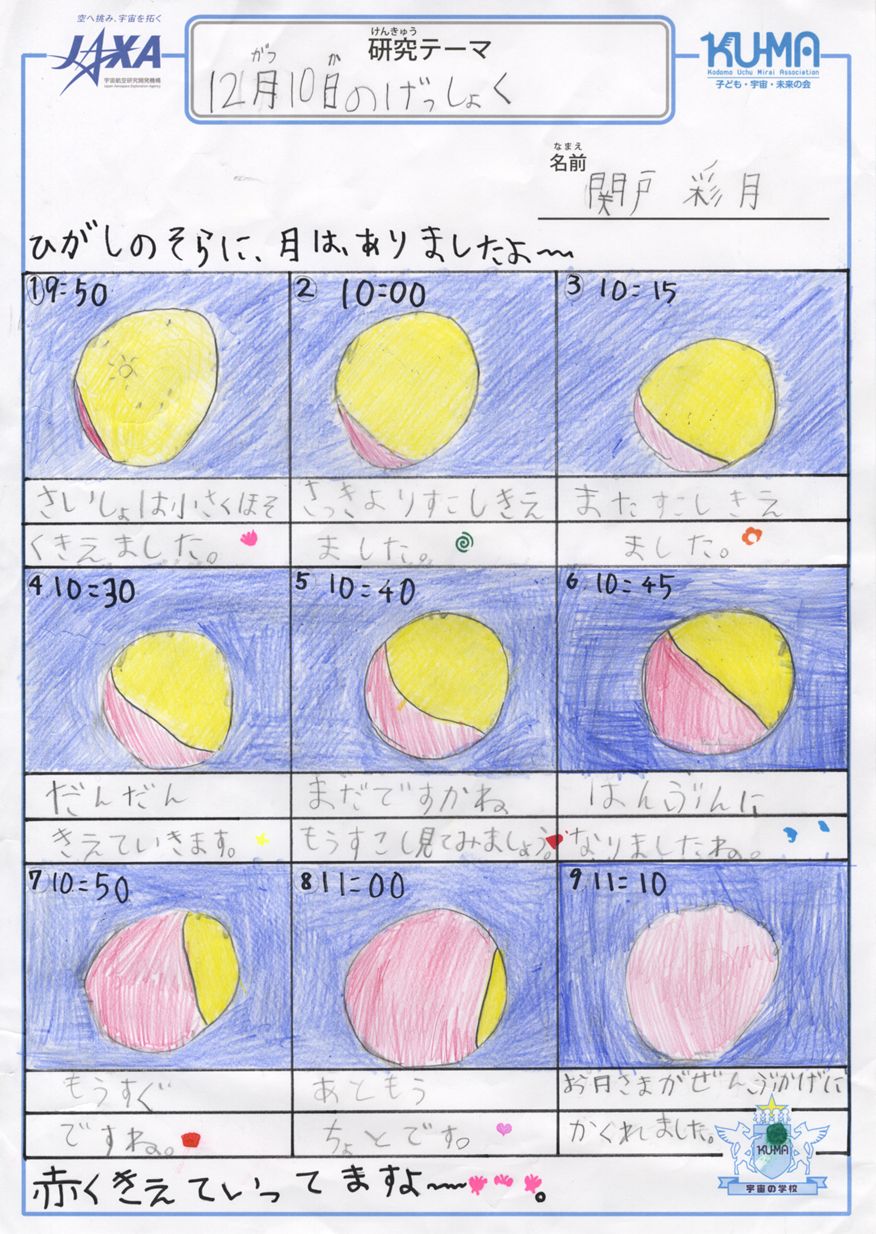 空へ挑み、宇宙を拓く
JAXA
宇宙航空研究開発機構
Japan Aerospace Exploration Agency
けんきゅう
研究テーマ
がつ か
12月10日のげっしょく
KU-MA
Kodomo Uchu Mirai Association
子ども・宇宙・未来の会
なまえ
名前
関戸 彩月
ひがしのそらに、月は、ありましたよ〜
①9=50
② 10=00
③ 10=15
さいしょは小さくほそ
くきえました。
さっきよりすこしきえ
ました。
またすこしきえ
ました。
4 10=30
5 10=40
6 10=45
だんだん
きえていきます。
まだですかね
もうすこし見てみましょう。
はんぶんに
なりましたね。
7 10=50
8 11=00
9 11=10
もうすぐ
ですね。
あともう
ちょとです。
お月さまがぜんぶかげに
かくれました。
KU-MA
宇宙の学校
赤くきえていってますよ〜。